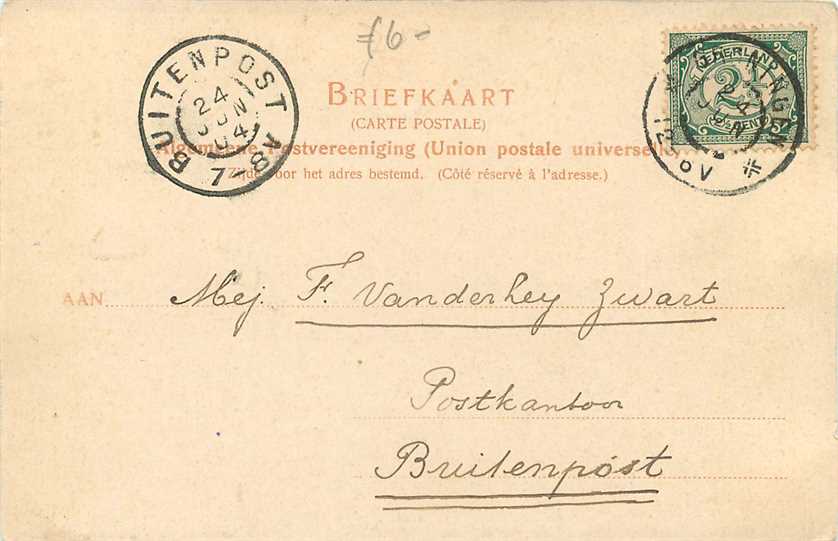 f6-
BUITENPOST
24
JUN
04
7-8V
BRIEFKAART
(CARTE POSTALE)
Algemeene Postvereeniging (Union postale universelle
Zijde voor het adres bestemd. (Côté réservé à l'adresse.)
NEDERLAND
2½
CENT
NINGEN
24
JUN
12-6V
AAN
Mej. F. Vanderhey Zwart
Postkantoor
Buitenpost